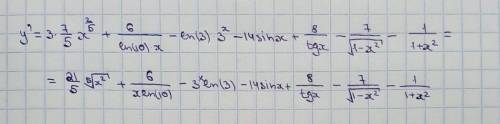 y' = 3 · 7/5 x^(2/5) + 6/(ln(10) x) - ln(3) 3^x - 14 sin x + 8/tgx - 7/√(1-x²) - 1/(1+x²) =
= 21/5 ⁵√(x²) + 6/(x ln(10)) - 3^x ln(3) - 14 sin x + 8/tgx - 7/√(1-x²) - 1/(1+x²)